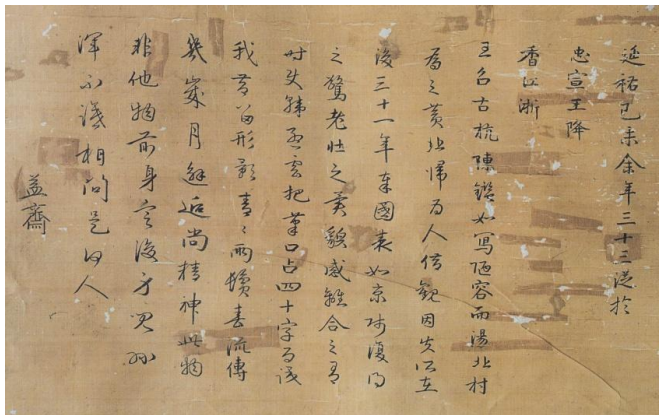 延祐己未余年三十三從於
忠宣王降
香江浙
王召古杭陳鑑如寫陋容而湯北村
為之賛北歸為人借觀因失所在
後三十一年奉國表如京師復得
之驚老壯之異貌感離合之有
時把筆口占四十字為識
我昔留形影青々兩鬢春流傳
幾歲月邂逅尚精神此物
非他物前身定後身兒孫
渾不識相問是何人
益齋